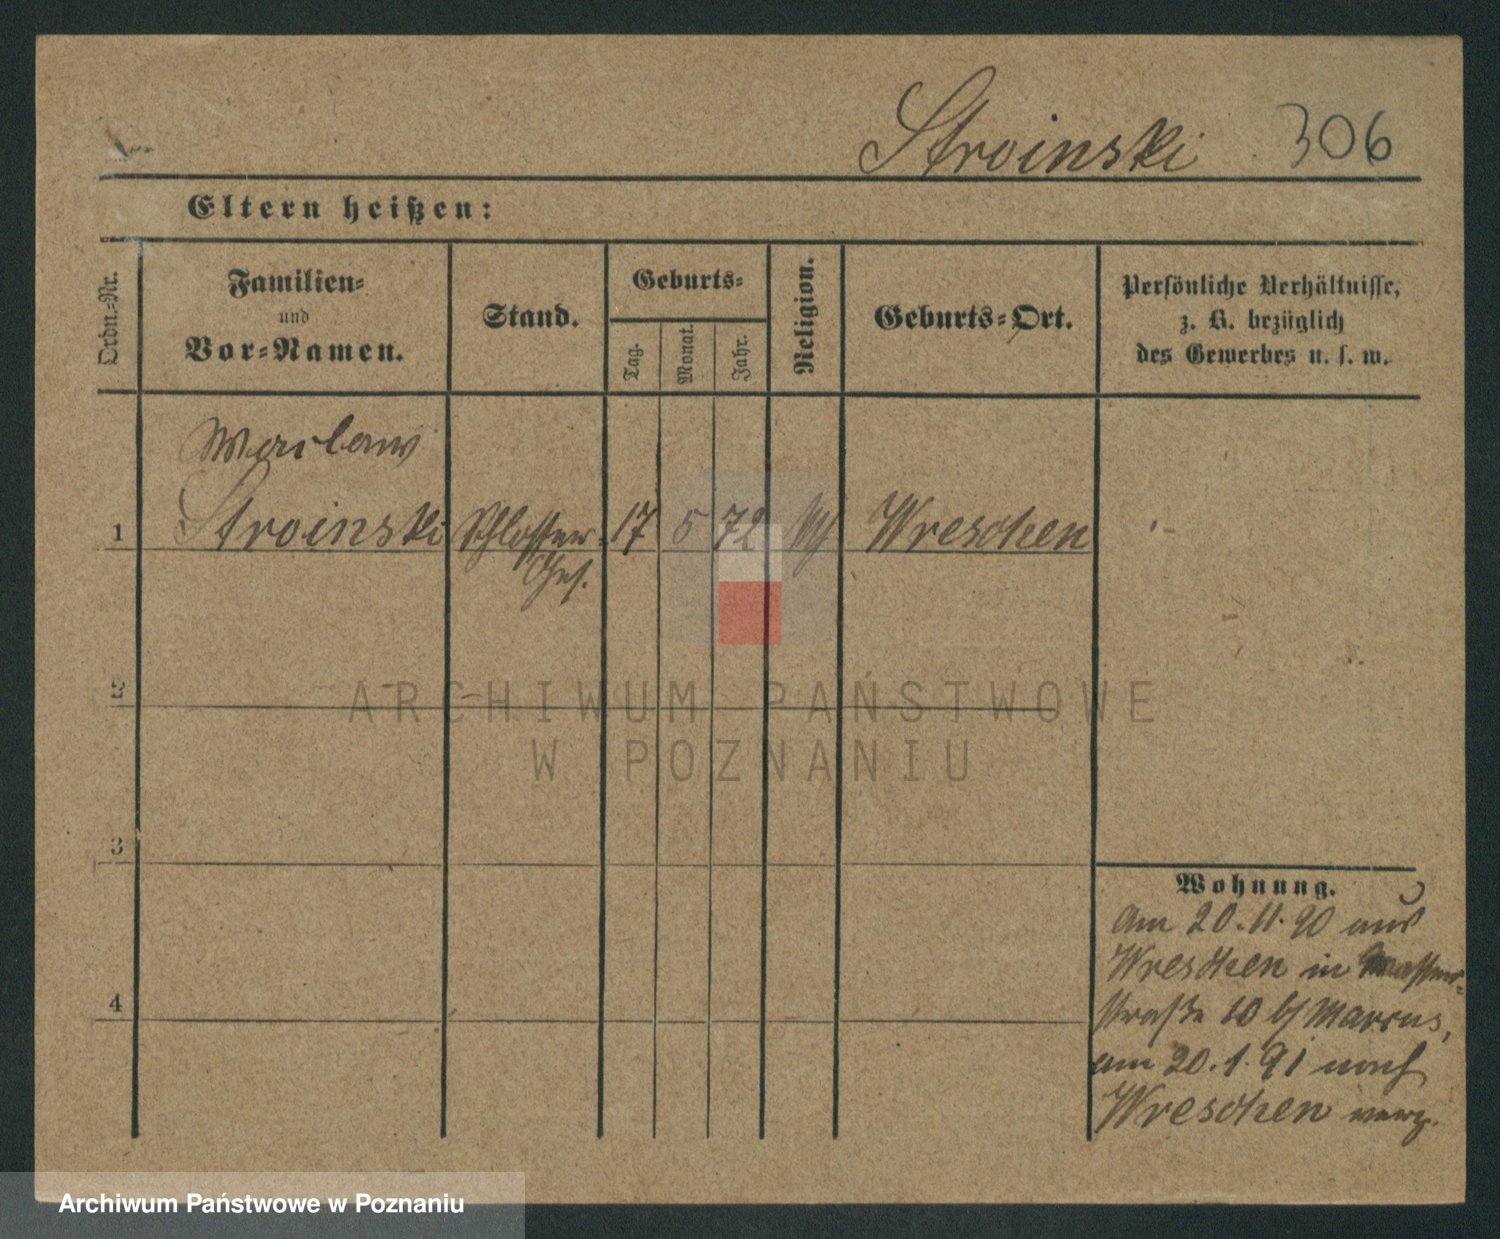 Stroinski 306
Eltern heißen:
Ordn.-Nr.
Familien-
und
Vor-Namen.
Stand.
Geburts-
Tag.
Monat.
Jahr.
Religion.
Geburts-Ort.
Persönliche Verhältnisse,
z. B. bezüglich
des Gewerbes u. s. w.
Waclaw
1 Stroinski Schlosser- 17 5 72 Wreschen
Ges.
2
3
4
Wohnung.
Am 20.11.90 aus
Wreschen in
straße 10 b/ Marcus,
am 20.1.91 nach
Wreschen verz.
ARCHIWUM PAŃSTWOWE
W POZNANIU
Archiwum Państwowe w Poznaniu